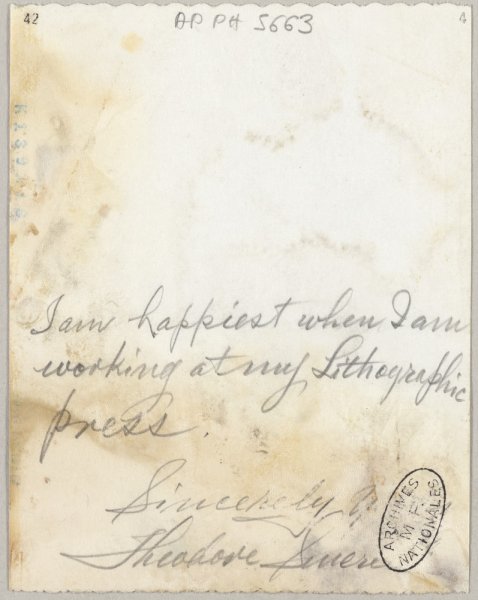 42
AP PH 5663
4
I am happiest when I am
working at my Lithographic
press.
Sincerely
Theodore
ARCHIVES
NATIONALES